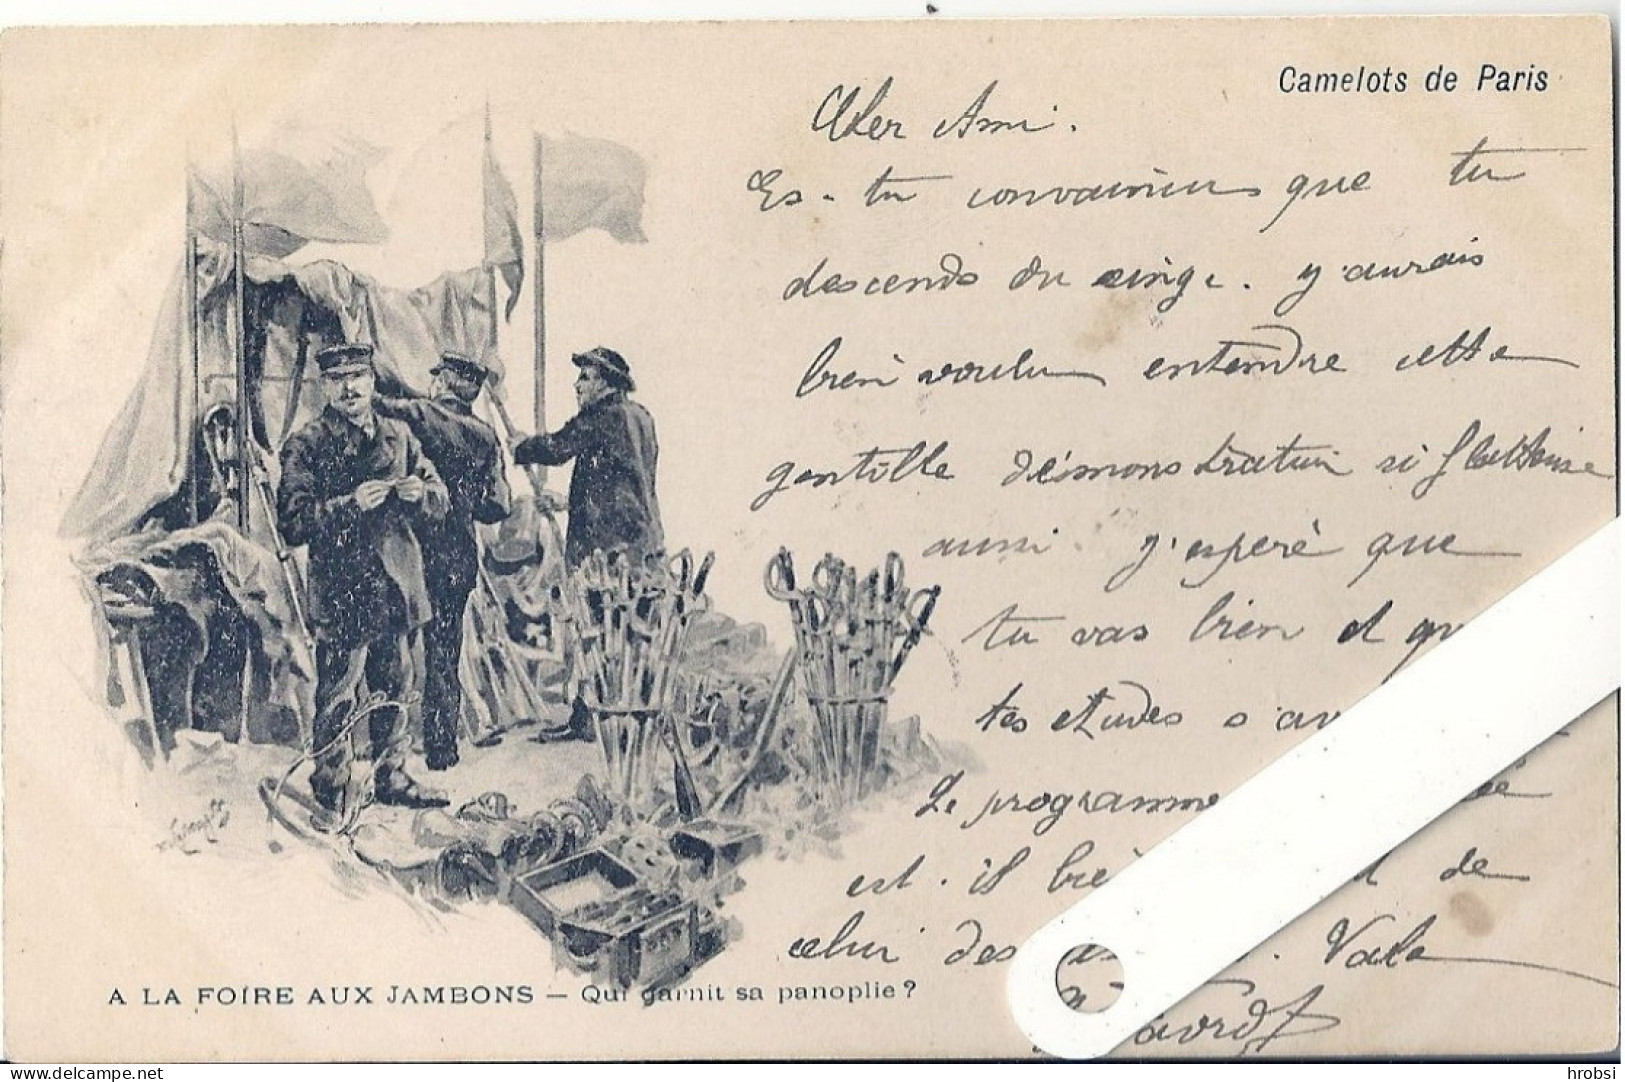 Camelots de Paris
Cher Ami.
Es-tu convaincu que tu
descends du singe. j'aurais
bien voulu entendre cette
gentille démonstration si
aussi. j'espère que
tu vas bien et
tes etudes
Le programme
est-il de
celui des Vale
A LA FOIRE AUX JAMBONS — Qui garnit sa panoplie ?
hrobsi
delcampe.net